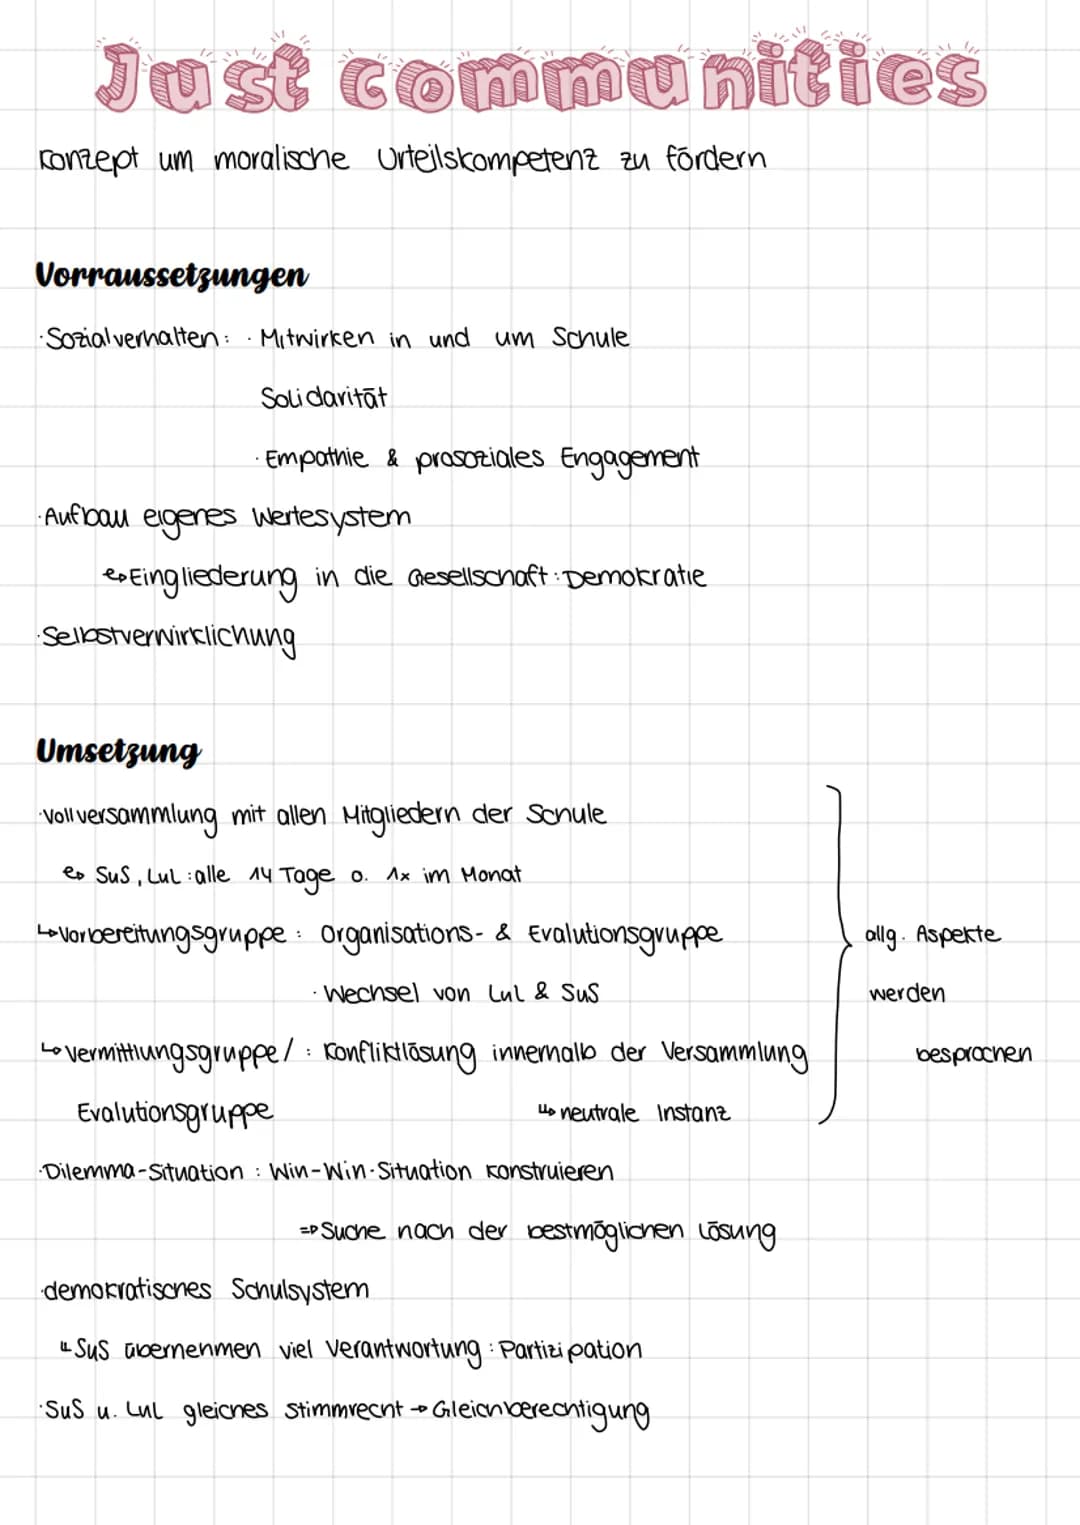 Just communities
Konzept um moralische Urteilskompetenz zu fördern
Vorraussetzungen
·Sozialverhalten: · Mitwirken in und um Schule
Solidarität
· Empathie & prosoziales Engagement
·Aufbau eigenes Wertesystem
↳Eingliederung in die Gesellschaft: Demokratie
·Selbstverwirklichung
Umsetzung
·Vollversammlung mit allen Mitgliedern der Schule
↳ SuS, LuL: alle 14 Tage o. 1x im Monat
↳Vorbereitungsgruppe: Organisations- & Evalutionsgruppe
· Wechsel von LuL & SuS
↳Vermittlungsgruppe/ : Konfliktlösung innerhalb der Versammlung
Evalutionsgruppe ↳neutrale Instanz
allg. Aspekte
werden
besprochen
·Dilemma-Situation: Win-Win-Situation konstruieren
=>Suche nach der bestmöglichen Lösung
·demokratisches Schulsystem
↳SuS übernehmen viel Verantwortung: Partizipation
·SuS u. LuL gleiches Stimmrecht → Gleichberechtigung